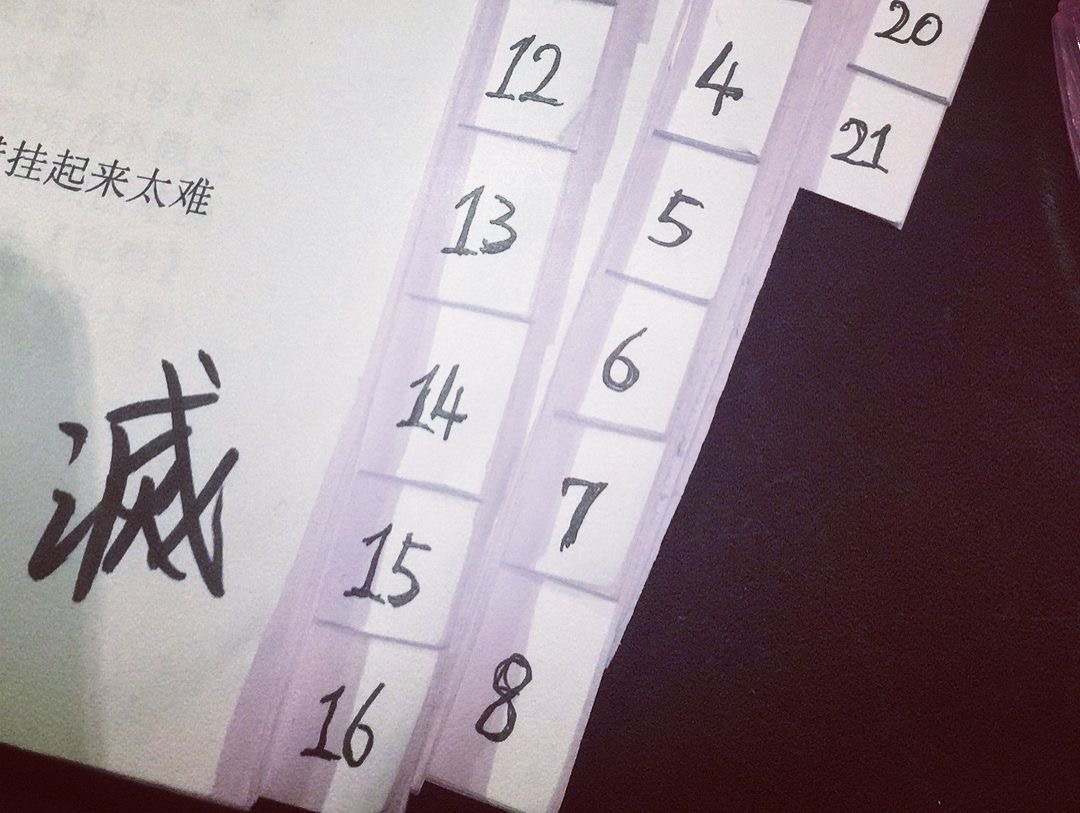 挂起来太难
滅
12
13
14
15
16
4
5
6
7
8
20
21